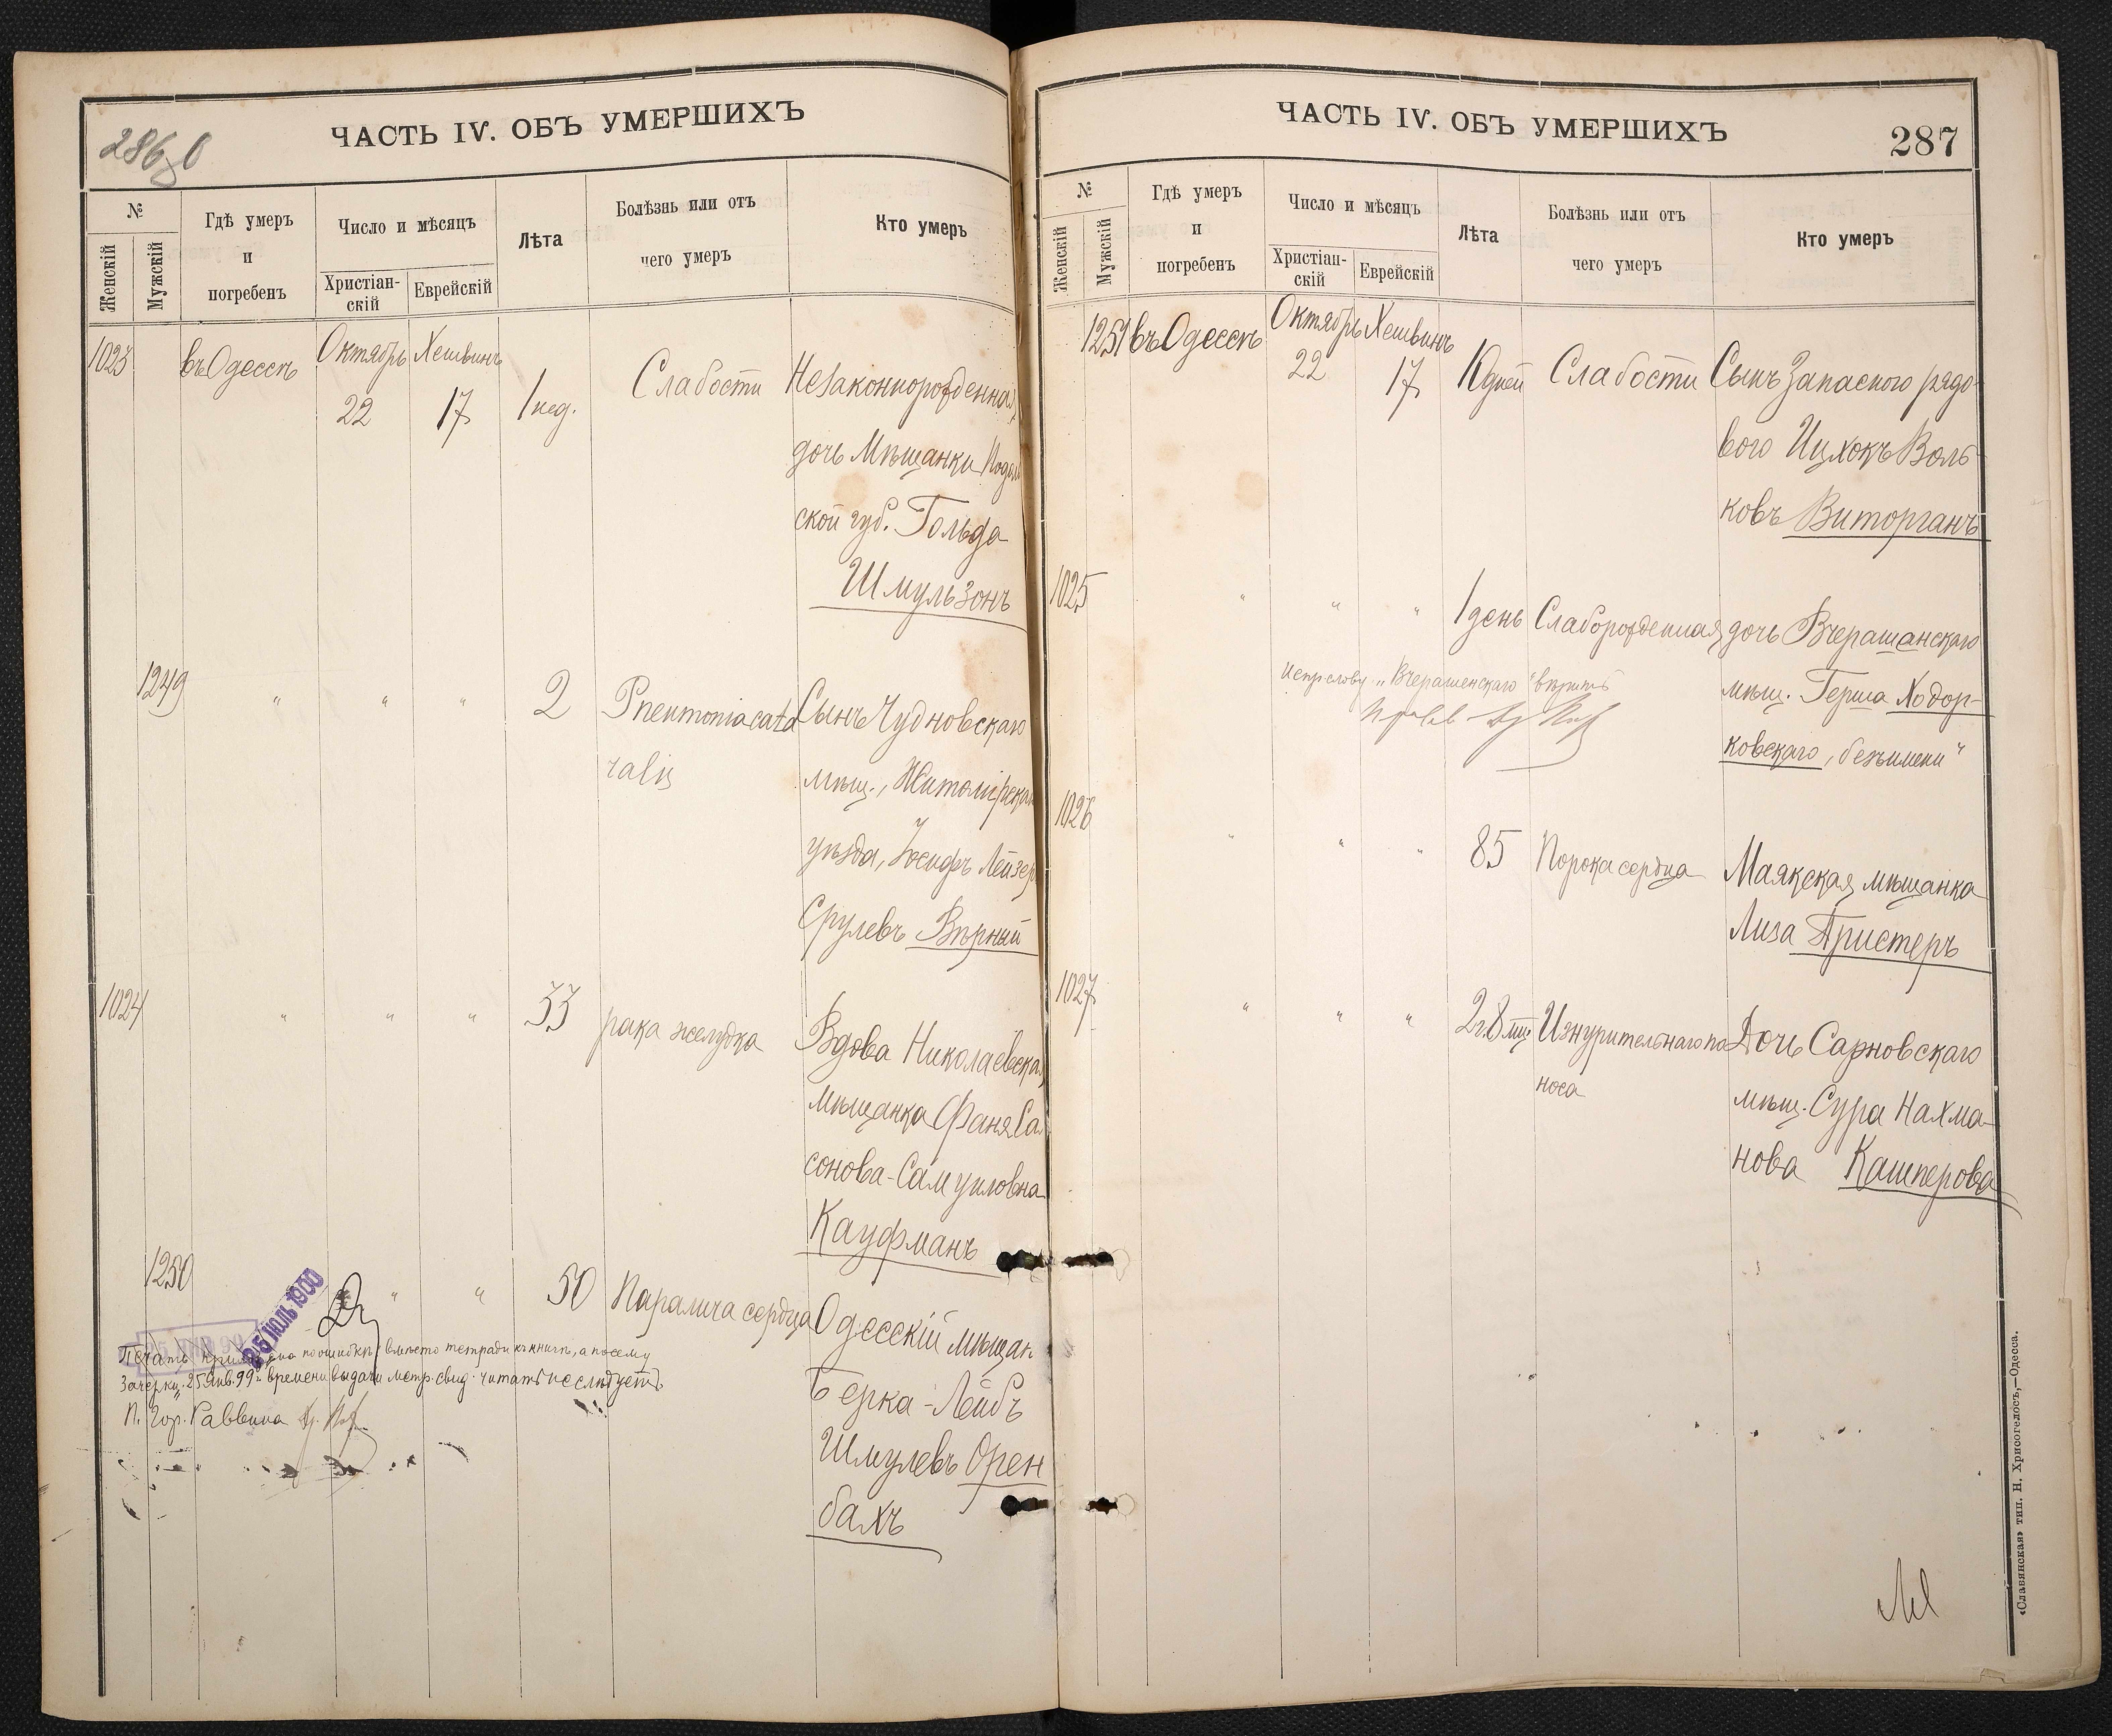 286 об
ЧАСТЬ IV. ОБЪ УМЕРШИХЪ
№
Женскій
Мужскій
Гдѣ умеръ
и
погребенъ
Число и мѣсяцъ
Христіан-
скій
Еврейскій
Лѣта
Болѣзнь или отъ
чего умеръ
Кто умеръ
1023 въ Одессѣ Октябрь Хешвинъ
22 17 1 нед. Слабости Незаконнорожденная
дочь Мѣщанки Подол
ской губ. Гольда
Шмульзонъ
1249 " " " 2 Pneumonia catar
ralis
Сынъ Чудновскаго
мѣщ., Житомірскаго
уѣзда, Іосифъ Лейзеръ
Срулевъ Вѣрный
1024 " " " 33 рака желудка
Вдова Николаевская
мѣщанка Фаня Са
сонова-Самуиловна
Кауфманъ
1250 " " 50 Паралича сердца
Одесскій мѣщан
Берка-Лейбъ
Шмулевъ Орен
бахъ
25 ИЮЛЬ 1900
Печать приложена по ошибкѣ вмѣсто тетради къ книгѣ, а посему
Зачеркн. "25 Янв. 99" времени выдачи метр. свид. читать не слѣдуетъ.
П. Гор. Раввина
ЧАСТЬ IV. ОБЪ УМЕРШИХЪ
287
№
Женскій
Мужскій
Гдѣ умеръ
и
погребенъ
Число и мѣсяцъ
Христіан-
скій
Еврейскій
Лѣта
Болѣзнь или отъ
чего умеръ
Кто умеръ
1251 въ Одессѣ Октябрь Хешвинъ
22 17 10 дней Слабости Сынъ Запасного рядо-
вого Ицхокъ Воль-
ковъ Виторганъ
1025 " " " 1 день Слаборожденная дочь Вчерашанскаго
мѣщ. Герша Ходор-
ковскаго, безъимени"
Испр. слову "Вчерашенскаго" вѣрить
1026 " " " 85 Порока сердца
Маякская мѣщанка
Лиза Пристеръ
1027 " " " 2 г. 8 мц. Изнурительнаго по
носа
Дочь Сарновскаго
мѣщ. Сура Нахма-
нова Кашперова
«Славянская» тип. Н. Хрисогелосъ,—Одесса.